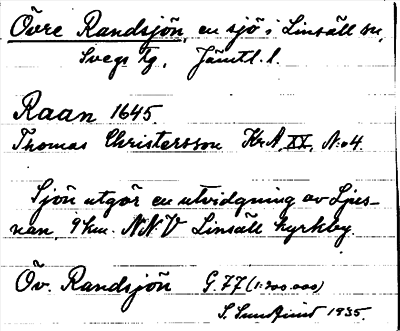 Övre Randsjön, en sjö i Linsäll sn,
Svegs tg, Jämtl. l.
Raan 1645.
Thomas Christersson Kr A, XX, N:o 4.
Sjön utgör en utvidgning av Ljus-
nan, 9 km. N.N.V Linsäll kyrkby.
Öv. Randsjön G. 77 (1:200.000)
S. 1935.